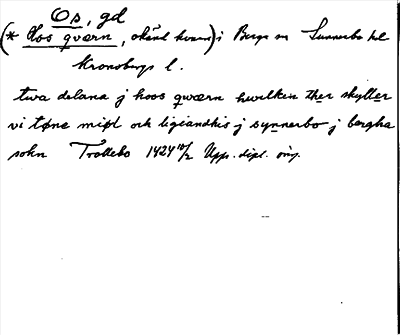 Os, gd
(* Hos qværn, okänd kvarn) i Berga sn Sunnerbo hd
Kronobergs l.
twa delana j hoos qwærn hwilkin ther skyller
vi tøne miøl och ligiandhis j synnerbo j bergha
sokn Trottebo 1424 10/2 Upps. dipl. övs.